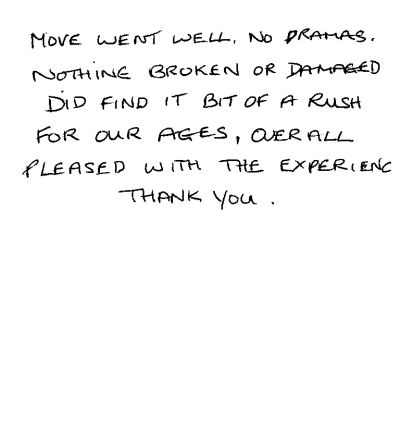 MOVE WENT WELL. NO DRAMAS.
NOTHING BROKEN OR DAMAGED
DID FIND IT BIT OF A RUSH
FOR OUR AGES, OVERALL
PLEASED WITH THE EXPERIENC
THANK YOU.